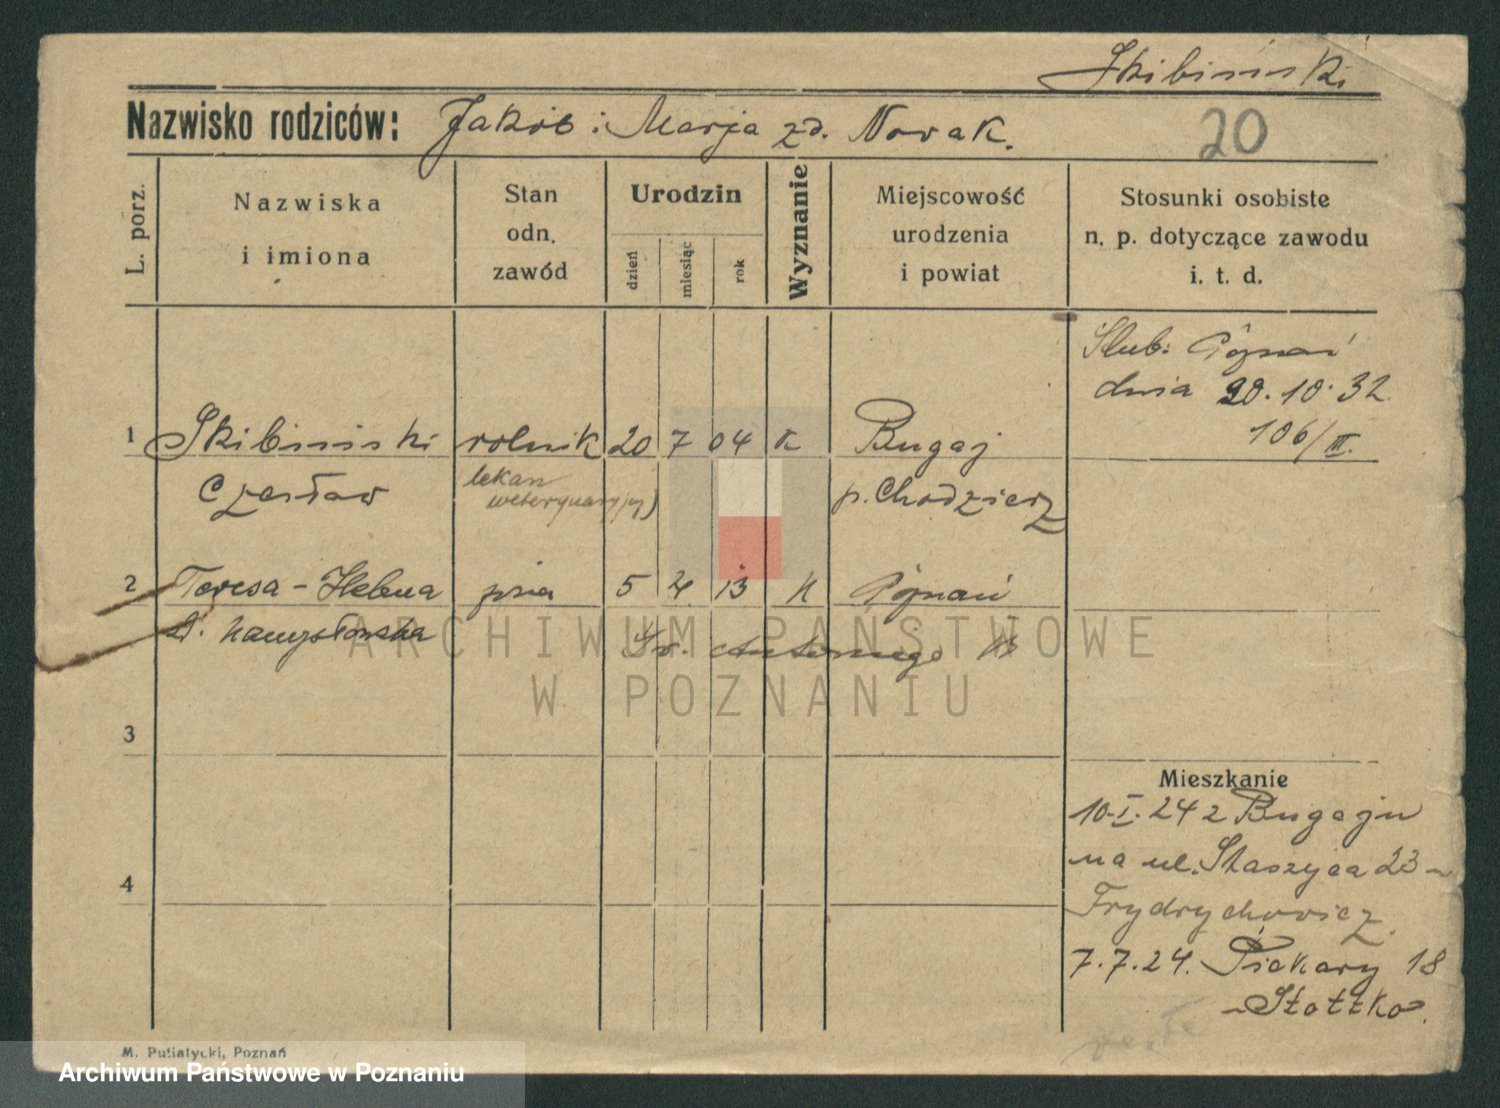 Skibiński
Nazwisko rodziców: Jakób i Marja zd. Nowak.
20
L. porz.
Nazwiska
i imiona
Stan
odn.
zawód
Urodzin
dzień
miesiąc
rok
Wyznanie
Miejscowość
urodzenia
i powiat
Stosunki osobiste
n. p. dotyczące zawodu
i. t. d.
Ślub: Poznań
dnia 20.10.32
106/III.
1 Skibiński rolnik 20 7 04 K Bugaj
Czesław lekarz weterynaryjny) p. Chodzież
2 Teresa-Helena 5 4 13 K Poznań
d. Namysłowska Św. Antoniego
ARCHIWUM PAŃSTWOWE
W POZNANIU
3
Mieszkanie
10.I.24 z Bugaju
na ul. Staszyca 23 -
Frydrychowicz.
4
7.7.24. Piekary 18
M. Putiatycki, Poznań
Archiwum Państwowe w Poznaniu